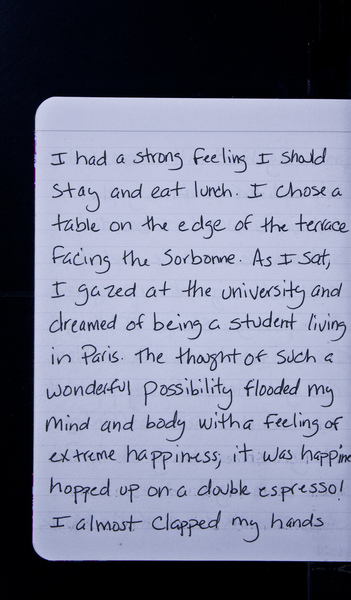 I had a strong feeling I should
stay and eat lunch. I chose a
table on the edge of the terrace
facing the Sorbonne. As I sat,
I gazed at the university and
dreamed of being a student living
in Paris. The thought of such a
wonderful possibility flooded my
mind and body with a feeling of
extreme happiness; it was happine
hopped up on a double espresso!
I almost clapped my hands